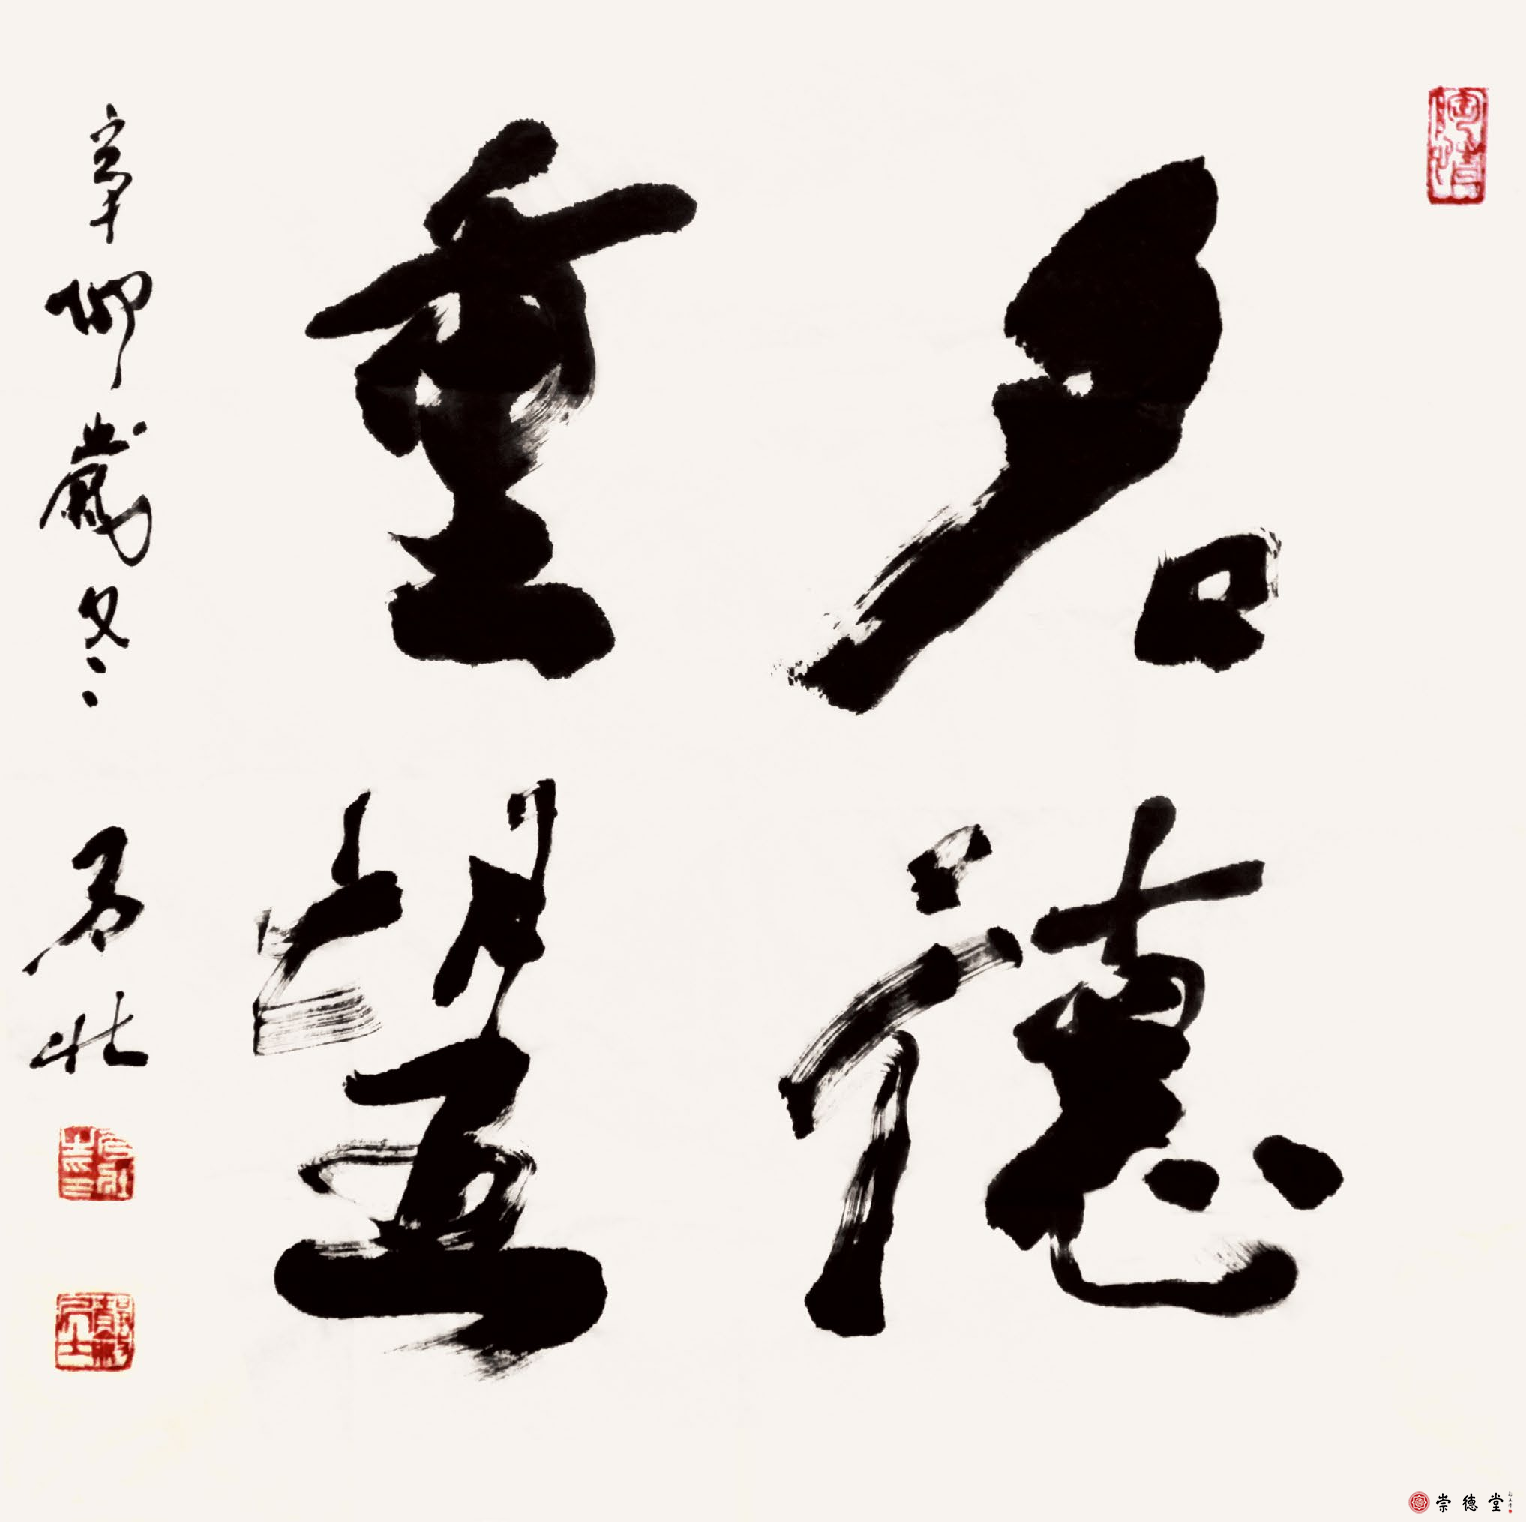 名德
重望
辛卯歲冬
崇德堂